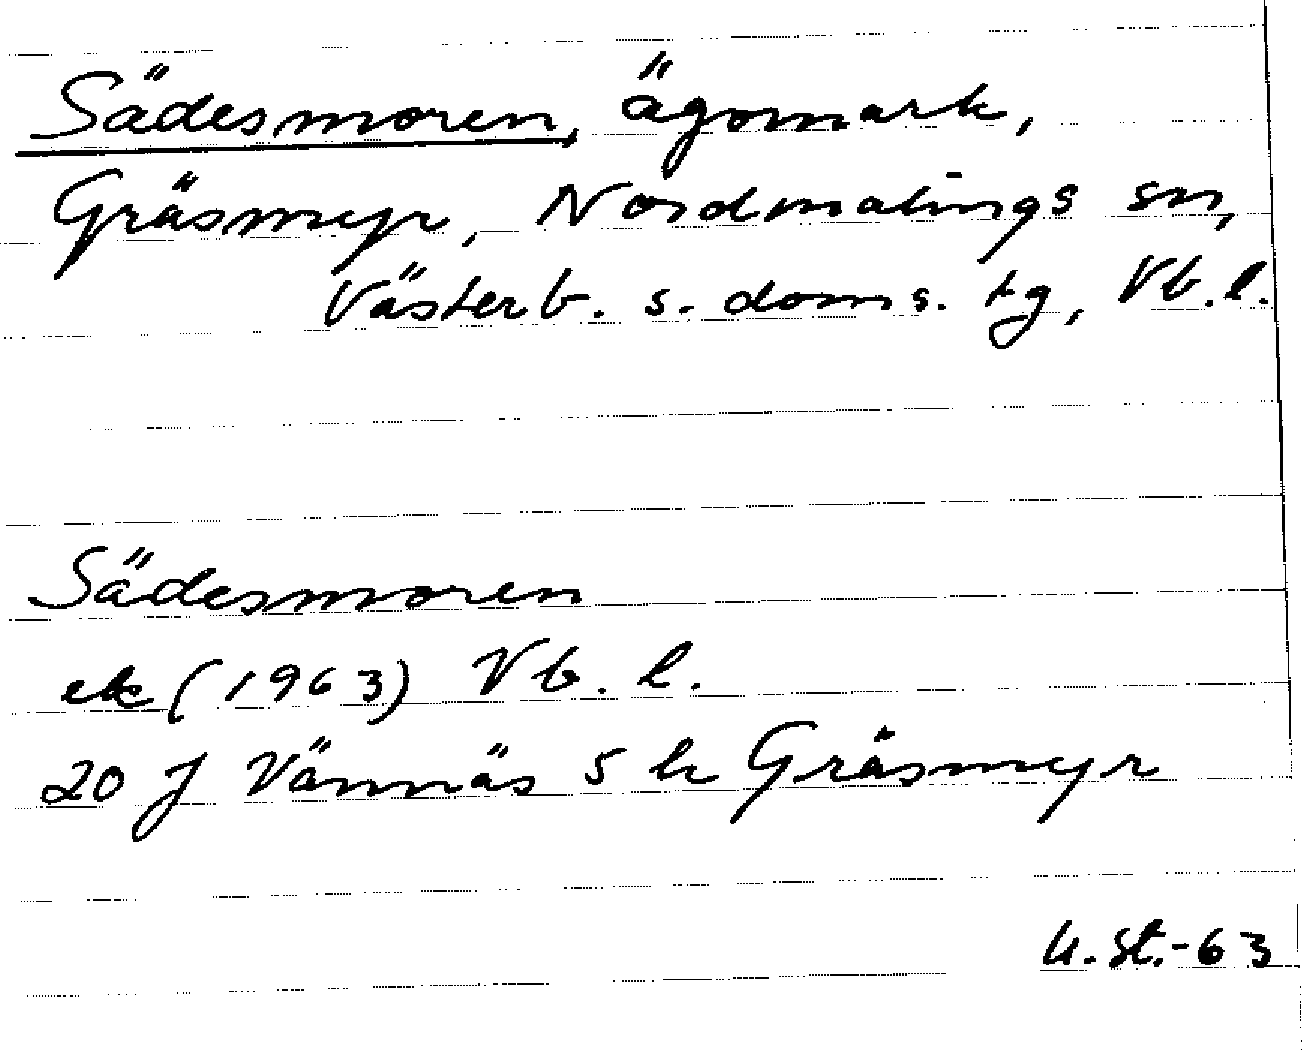 Sädesmoren, ägomark,
Gräsmyr, Nordmalings sn,
Västerb. s. doms. tg, Vb. l.
Sädesmoren
ek (1963) Vb. l.
20 J Vännäs 5 h Gräsmyr
U. St. -63